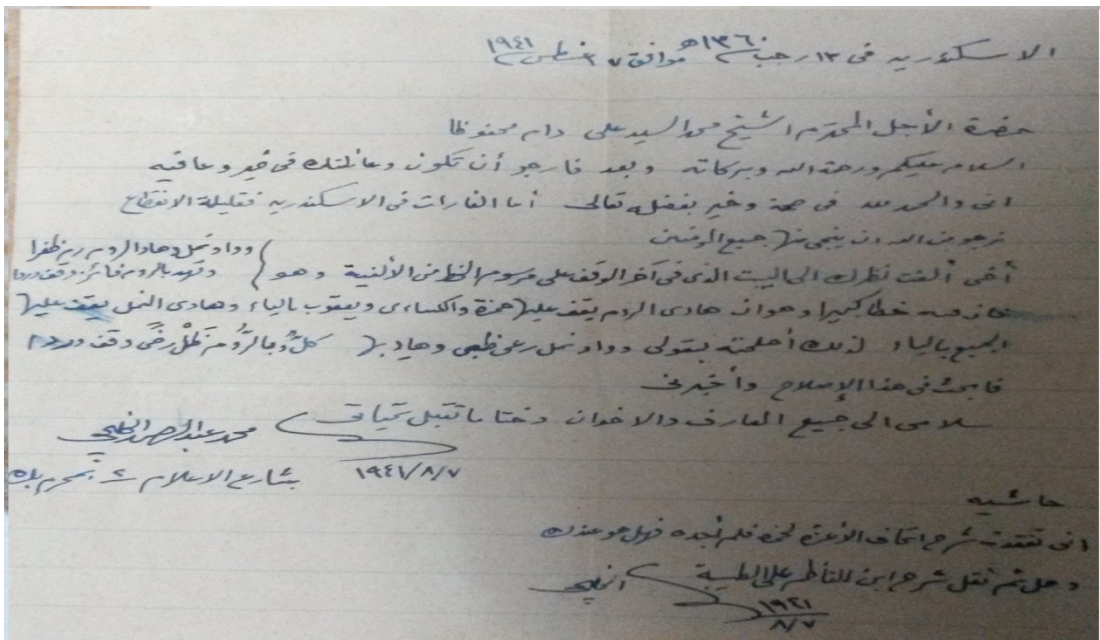 الاسكندريه فى ١٣ رجب ١٣٦٠ﻫ موافق ٧ أغسطس ١٩٤١
حضرة الأجل المحترم الشيخ محمد السيد على دام محفوظا
السلام عليكم ورحمة الله وبركاته وبعد فارجو أن تكون وعائلتك فى خير وعافيه
انى والحمد لله فى صحة وخير بفضله تعالى أما الغارات فى الاسكندريه فقليلة الانقطاع
نرجو من الله ان ينجى منها جميع المؤمنين
أخى ألفت نظرك الى البيت الذى فى آخر الوقف على مرسوم الخط من الألفية وهو
وواد نمل وهاد الروم
وقف
فان فيه خطأ كبيرا وهو ان هادى الروم يقف عليها حمزة والكسائى ويعقوب بالياء وهادى النمل يقف عليها
الجميع بالياء لذلك أصلحته بقولى وواد نمل وهاد بها
فابحث فى هذا الإصلاح وأخبرنى
سلامى الى جميع المعارف والاخوان وختاما تقبل تحياتى
محمد عبدالرحمن الخليجى
١٩٤١/٨/٧
بشارع الاعلام بمحرم بك
حاشيه
انى تفقدت شرح اتحاف الأعزة لحمزة فلم أجده فهل هو عندك
وهل تم نقل شرح ابن الناظم على الطيبة
الخليجى
٨/٧